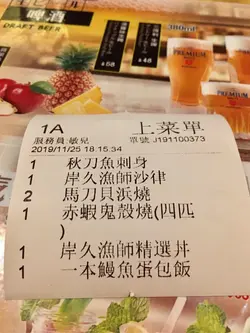 啤酒
DRAFT BEER
380ml
$68
$48
PREMIUM
PREMIUM
1A
上菜單
服務員:敏兒
單號 J191100373
2019/11/25 18:15:34
1 秋刀魚刺身
1 岸久漁師沙律
2 馬刀貝浜燒
1 赤蝦鬼殼燒(四匹
)
1 岸久漁師精選丼
1 一本鰻魚蛋包飯